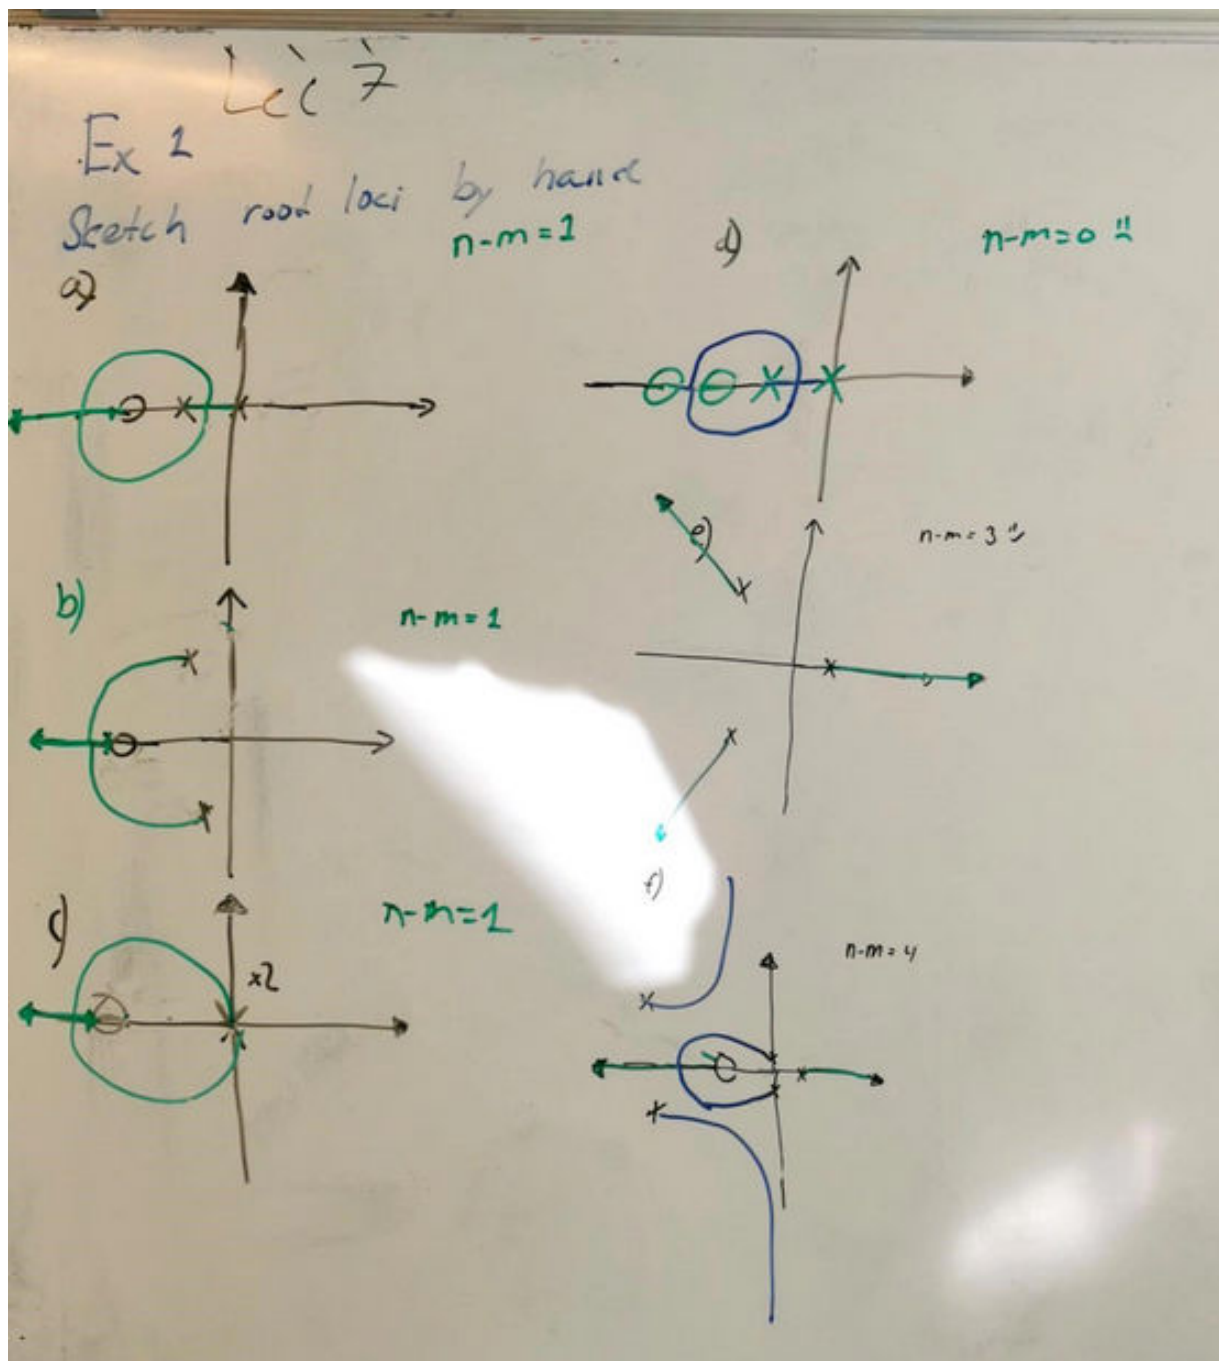 Lec 7
Ex 1
Scetch root loci by hand
a)
n-m=1
b)
n-m=1
c)
n-m=1
x2
d)
n-m=0
e)
n-m=3
f)
n-m=4